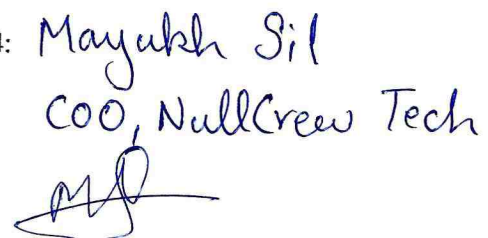 : Mayukh Sil
COO, NullCrew Tech